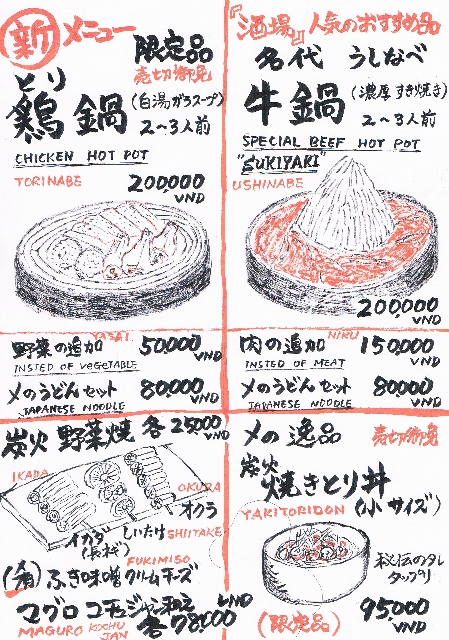 新 メニュー
限定品
売切御免
とり
鶏鍋 (白湯ガラスープ)
2〜3人前
CHICKEN HOT POT
TORINABE
200,000 VND
『酒場』人気のおすすめ品
名代 うしなべ
牛鍋 (濃厚 すき焼き)
2〜3人前
SPECIAL BEEF HOT POT
"SUKIYAKI"
USHINABE
200,000 VND
YASAI
野菜の追加 50,000 VND
INSTED OF VEGETABLE
〆のうどんセット 80,000 VND
JAPANESE NOODLE
NIKU
肉の追加 150,000 VND
INSTED OF MEAT
〆のうどんセット 80,000 VND
JAPANESE NOODLE
炭火 野菜焼 各 25,000 VND
IKADA
OKURA
オクラ
しいたけ
SHIITAKE
イカダ
(長ネギ)
FUKIMISO
ふき味噌クリームチーズ
マグロ コチュジャン和え
各 78,000 VND
MAGURO KOCHU JAN
〆の逸品 売切御免
炭火
焼きとり丼
(小サイズ)
YAKITORIDON
秘伝のタレ
タップリ
(限定品)
95,000 VND